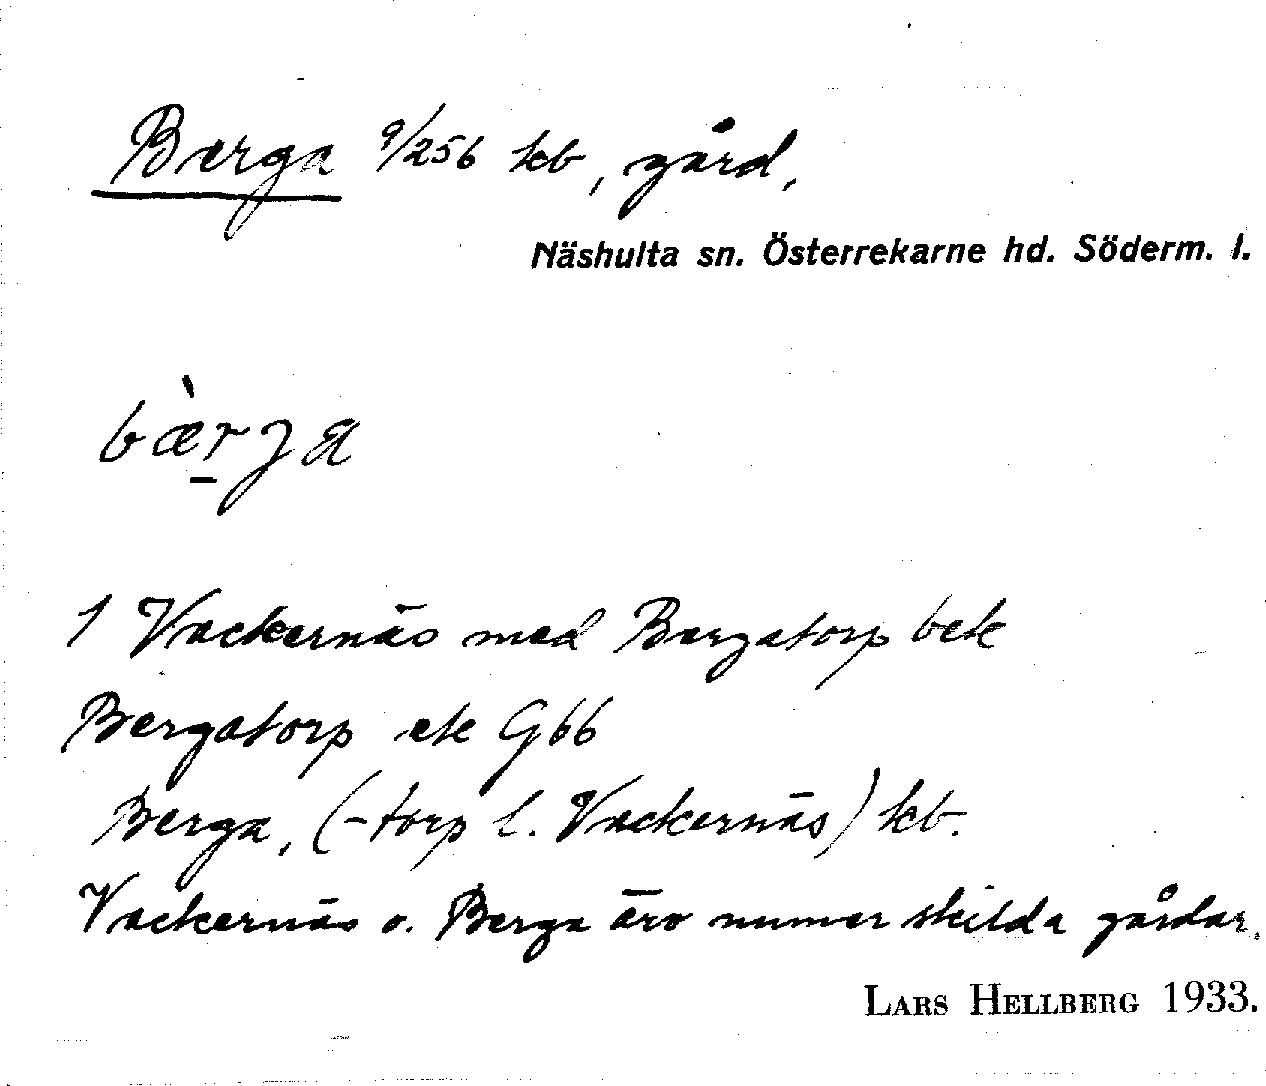 Berga 9/256 kb, gård,
Näshulta sn. Österrekarne hd. Söderm. l.
bæ̀rja
1 Vackernäs med Bergatorp bek
Bergatorp ek G66
Berga, (-torp l. Vackernäs) kb.
Vackernäs o. Berga äro numer skilda gårdar.
LARS HELLBERG 1933.